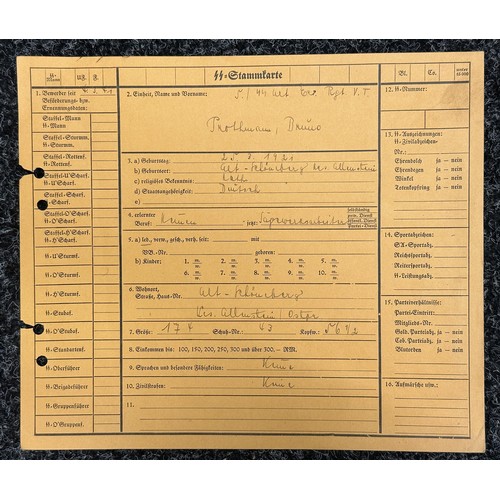 ᛋᛋ-Mann
Uf.
F.
ᛋᛋ-Stammkarte
Bl.
Co.
1. Bewerber seit
Beförderungs- bzw.
Ernennungsdaten:
Staffel-Mann
ᛋᛋ-Mann
Staffel-Sturmm.
ᛋᛋ-Sturmm.
Staffel-Rottenf.
ᛋᛋ-Rottenf.
Staffel-U'Scharf.
ᛋᛋ-U'Scharf.
Staffel-Scharf.
ᛋᛋ-Scharf.
Staffel-O'Scharf.
ᛋᛋ-O'Scharf.
Staffel-H'Scharf.
ᛋᛋ-H'Scharf.
ᛋᛋ-U'Sturmf.
ᛋᛋ-O'Sturmf.
ᛋᛋ-H'Sturmf.
ᛋᛋ-Stubaf.
ᛋᛋ-O'Stubaf.
ᛋᛋ-Standartenf.
ᛋᛋ-Oberführer
ᛋᛋ-Brigadeführer
ᛋᛋ-Gruppenführer
ᛋᛋ-O'Gruppenf.
2. Einheit, Name und Vorname:
Prothmann, Bruno
3. a) Geburtstag:
b) Geburtsort: Alt-Schöneberg Krs. Allenstein
c) religiöses Bekenntnis: kath.
d) Staatsangehörigkeit: Deutsch
e)
4. erlernter
Beruf: keinen jetz.: Sägewerksarbeiter
selbständig
priv. Dienst
öffentl. Dienst
Partei-Dienst
5. a) led., verw., gesch., verh. seit: mit
VB.-Nr. geboren:
b) Kinder: 1. m. w. 2. m. w. 3. m. w. 4. m. w. 5. m. w.
6. m. w. 7. m. w. 8. m. w. 9. m. w. 10. m. w.
6. Wohnort,
Straße, Haus-Nr. Alt-Schöneberg
Krs. Allenstein / Ostpr.
7. Größe: 174 Schuh-Nr. 43 Kopfw. 56 1/2
8. Einkommen bis: 100, 150, 200, 250, 300 und über 300,- RM.
9. Sprachen und besondere Fähigkeiten: Keine
10. Zivilstrafen: Keine
11.
12. ᛋᛋ-Nummer:
13. ᛋᛋ-Auszeichnungen:
ᛋᛋ-Zivilabzeichen
Nr.:
Ehrendolch ja – nein
Ehrendegen ja – nein
Winkel ja – nein
Totenkopfring ja – nein
14. Sportabzeichen:
SA-Sportabz.
Reichssportabz.
Reitersportabz.
ᛋᛋ-Leistungsabz.
15. Parteiverhältnisse:
Partei-Eintritt:
Mitglieds-Nr.
Gold. Parteiabz. ja – nein
Cob. Parteiabz. ja – nein
Blutorden ja – nein
16. Aufmärsche usw.: